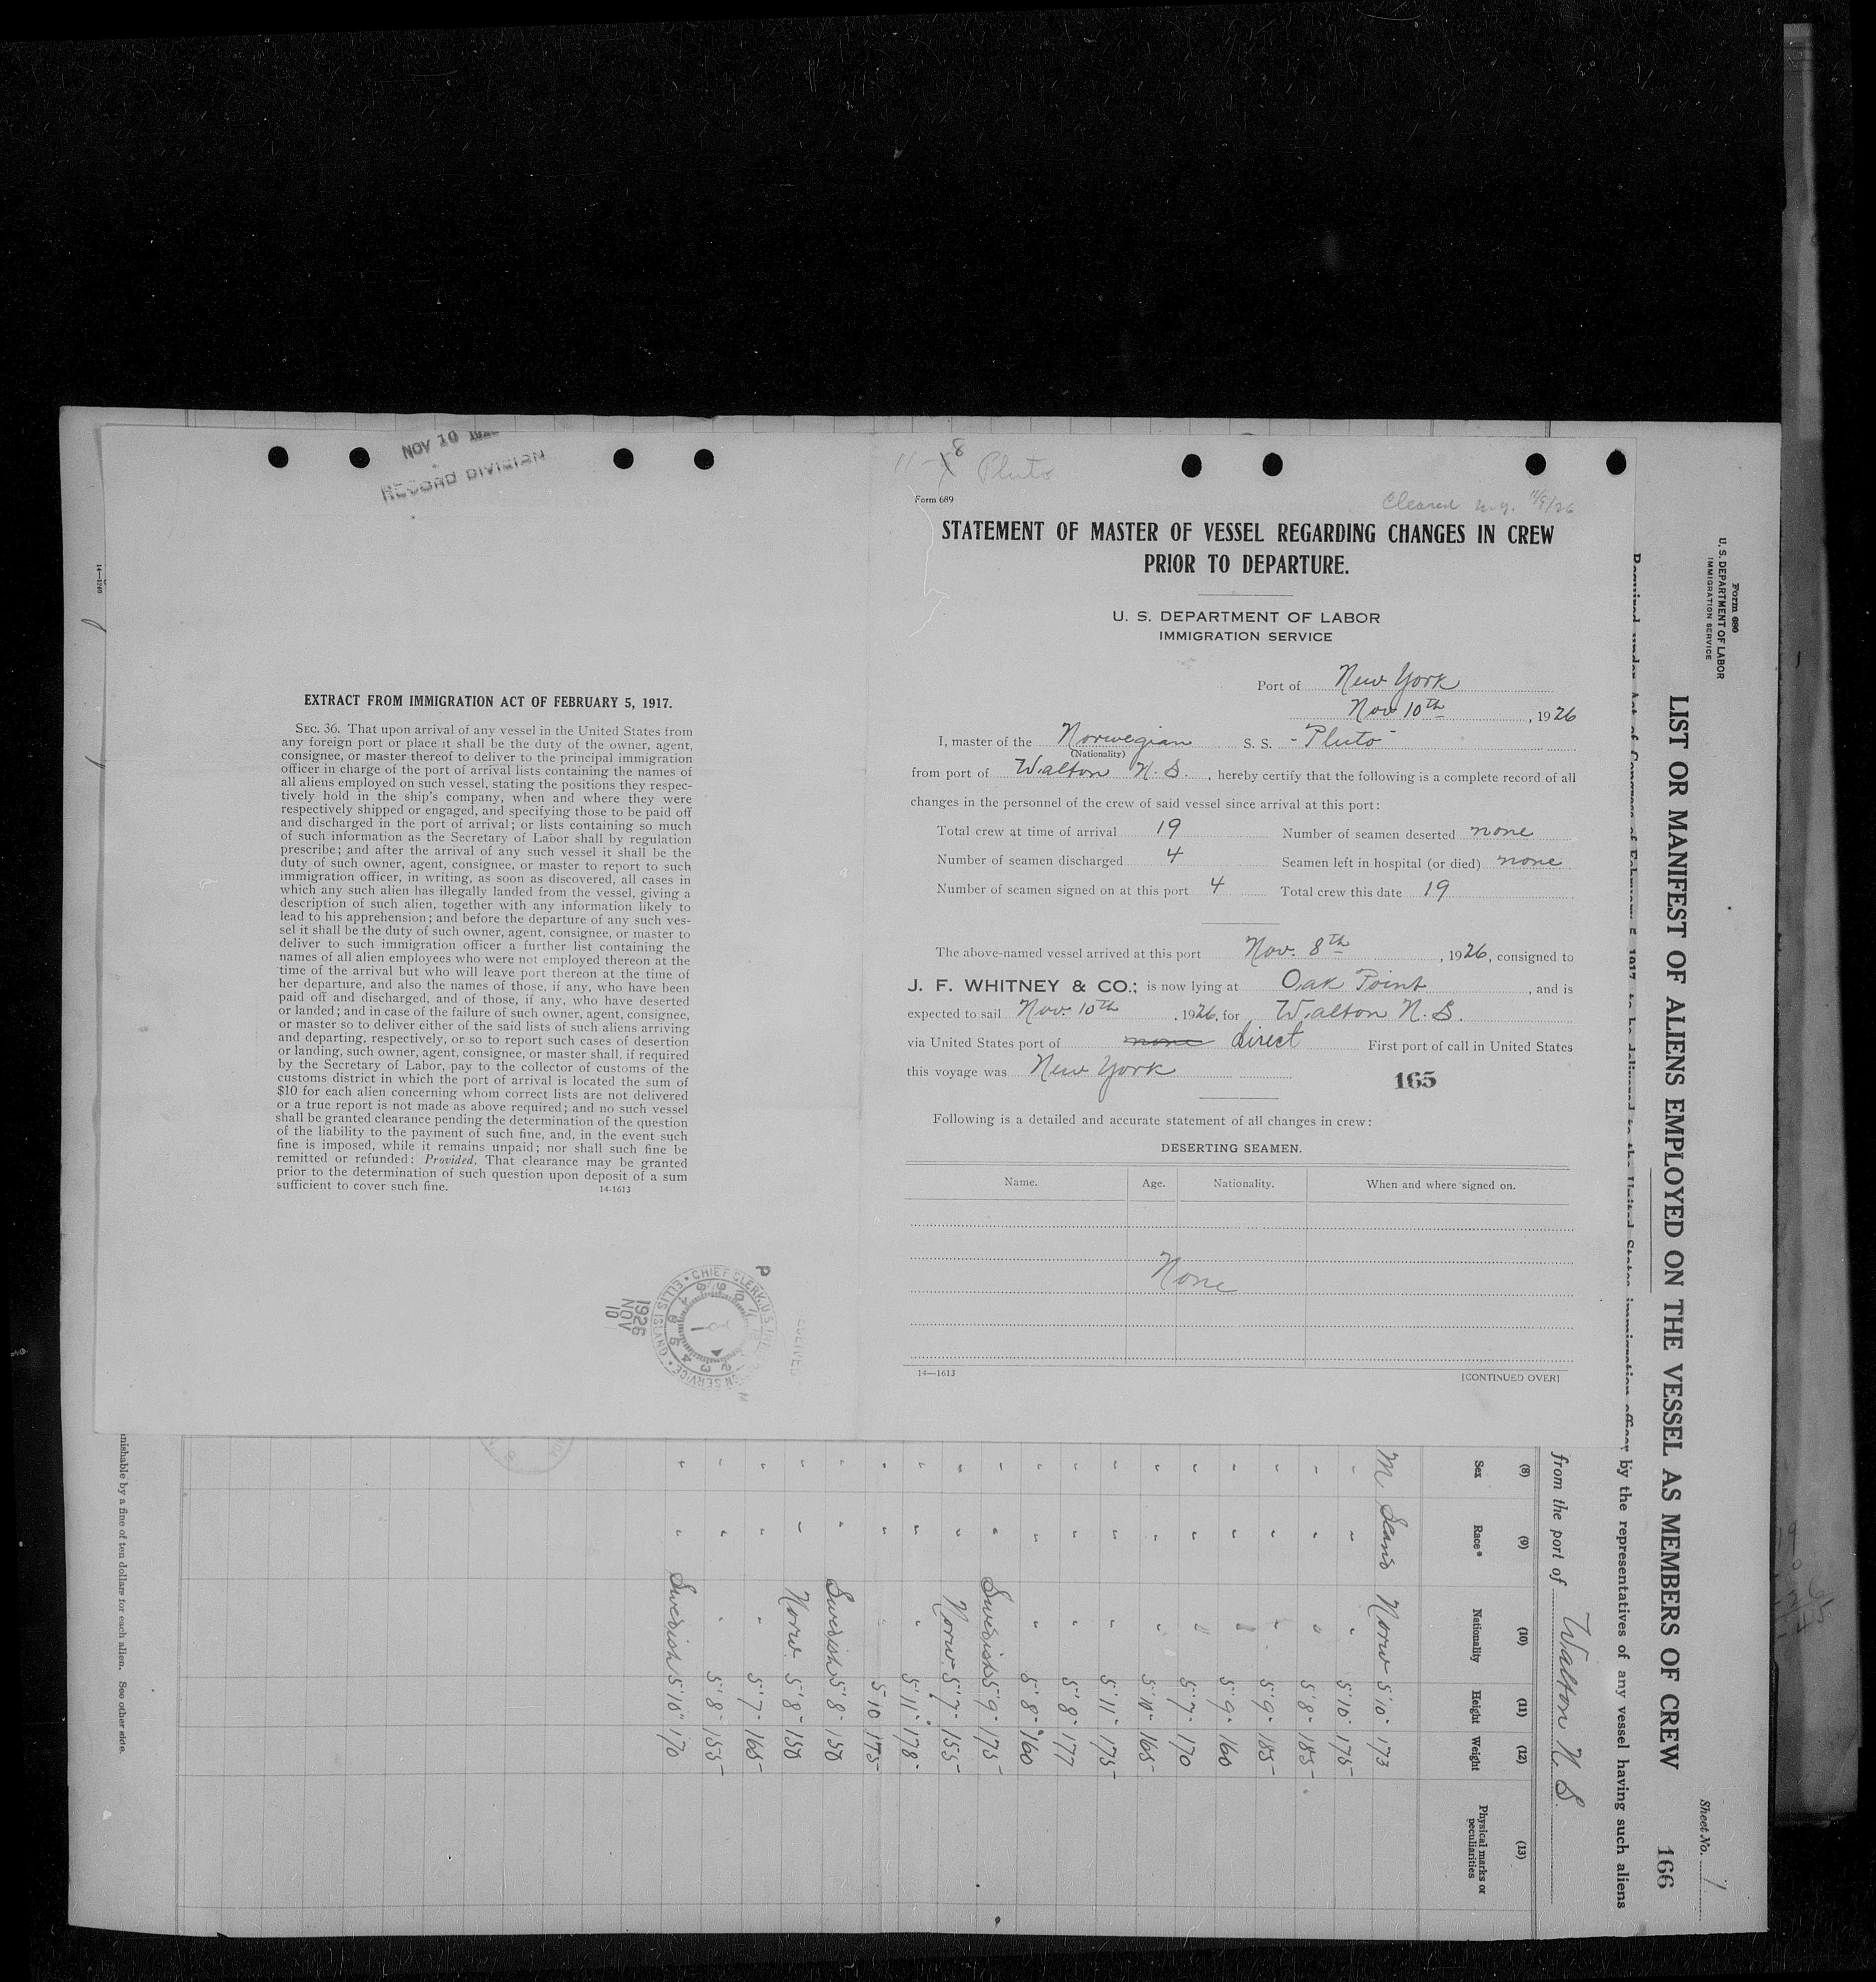 NOV 10
RECORD DIVISION
EXTRACT FROM IMMIGRATION ACT OF FEBRUARY 5, 1917.
SEC. 36. That upon arrival of any vessel in the United States from
any foreign port or place it shall be the duty of the owner, agent,
consignee, or master thereof to deliver to the principal immigration
officer in charge of the port of arrival lists containing the names of
all aliens employed on such vessel, stating the positions they respec-
tively hold in the ship's company, when and where they were
respectively shipped or engaged, and specifying those to be paid off
and discharged in the port of arrival; or lists containing so much
of such information as the Secretary of Labor shall by regulation
prescribe; and after the arrival of any such vessel it shall be the
duty of such owner, agent, consignee, or master to report to such
immigration officer, in writing, as soon as discovered, all cases in
which any such alien has illegally landed from the vessel, giving a
description of such alien, together with any information likely to
lead to his apprehension; and before the departure of any such ves-
sel it shall be the duty of such owner, agent, consignee, or master to
deliver to such immigration officer a further list containing the
names of all alien employees who were not employed thereon at the
time of the arrival but who will leave port thereon at the time of
her departure, and also the names of those, if any, who have been
paid off and discharged, and of those, if any, who have deserted
or landed; and in case of the failure of such owner, agent, consignee,
or master so to deliver either of the said lists of such aliens arriving
and departing, respectively, or so to report such cases of desertion
or landing, such owner, agent, consignee, or master shall, if required
by the Secretary of Labor, pay to the collector of customs of the
customs district in which the port of arrival is located the sum of
$10 for each alien concerning whom correct lists are not delivered
or a true report is not made as above required; and no such vessel
shall be granted clearance pending the determination of the question
of the liability to the payment of such fine, and, in the event such
fine is imposed, while it remains unpaid; nor shall such fine be
remitted or refunded: Provided, That clearance may be granted
prior to the determination of such question upon deposit of a sum
sufficient to cover such fine.
14-1613
CHIEF CLERK, U.S. ELLIS ISLAND
1926
NOV
10
P
11-8 Pluto
Form 689
Cleared N.Y. 11/9/26
STATEMENT OF MASTER OF VESSEL REGARDING CHANGES IN CREW
PRIOR TO DEPARTURE.
U. S. DEPARTMENT OF LABOR
IMMIGRATION SERVICE
Port of New York
Nov 10th, 1926
I, master of the Norwegian S. S. - Pluto -
(Nationality)
from port of Walton N. S., hereby certify that the following is a complete record of all
changes in the personnel of the crew of said vessel since arrival at this port:
Total crew at time of arrival 19 Number of seamen deserted none
Number of seamen discharged 4 Seamen left in hospital (or died) none
Number of seamen signed on at this port 4 Total crew this date 19
The above-named vessel arrived at this port Nov. 8th, 1926, consigned to
J. F. WHITNEY & CO.; is now lying at Oak Point, and is
expected to sail Nov. 10th, 1926, for Walton N. S.
via United States port of none direct First port of call in United States
this voyage was New York
165
Following is a detailed and accurate statement of all changes in crew:
DESERTING SEAMEN.
Name. Age. Nationality. When and where signed on.
None
14—1613
[CONTINUED OVER]
Form 680
U. S. DEPARTMENT OF LABOR
IMMIGRATION SERVICE
Sheet No. 1
LIST OR MANIFEST OF ALIENS EMPLOYED ON THE VESSEL AS MEMBERS OF CREW
166
Required under Act of Congress of February 5, 1917, to be delivered to the United States immigration officer by the representatives of any vessel having such aliens
from the port of Walton N. S.
(8) (9) (10) (11) (12) (13)
Sex Race* Nationality Height Weight Physical marks or peculiarities
M Scand Norw 5'10" 173
" " " 5'10" 175
" " " 5'8" 185
" " " 5'9" 185
" " " 5'9" 160
" " " 5'7" 170
" " " 5'10" 165
" " " 5'11" 175
" " " 5'8" 177
" " " 5'8" 160
" " Swedish 5'9" 175
" " Norw. 5'7" 155
" " " 5'11" 178
" " " 5'10 175
" " Swedish 5'8" 150
" " Norw. 5'8" 150
" " " 5'7" 165
" " " 5'8" 155
" " Swedish 5'10" 170
nishable by a fine of ten dollars for each alien. See other side.
14—1240